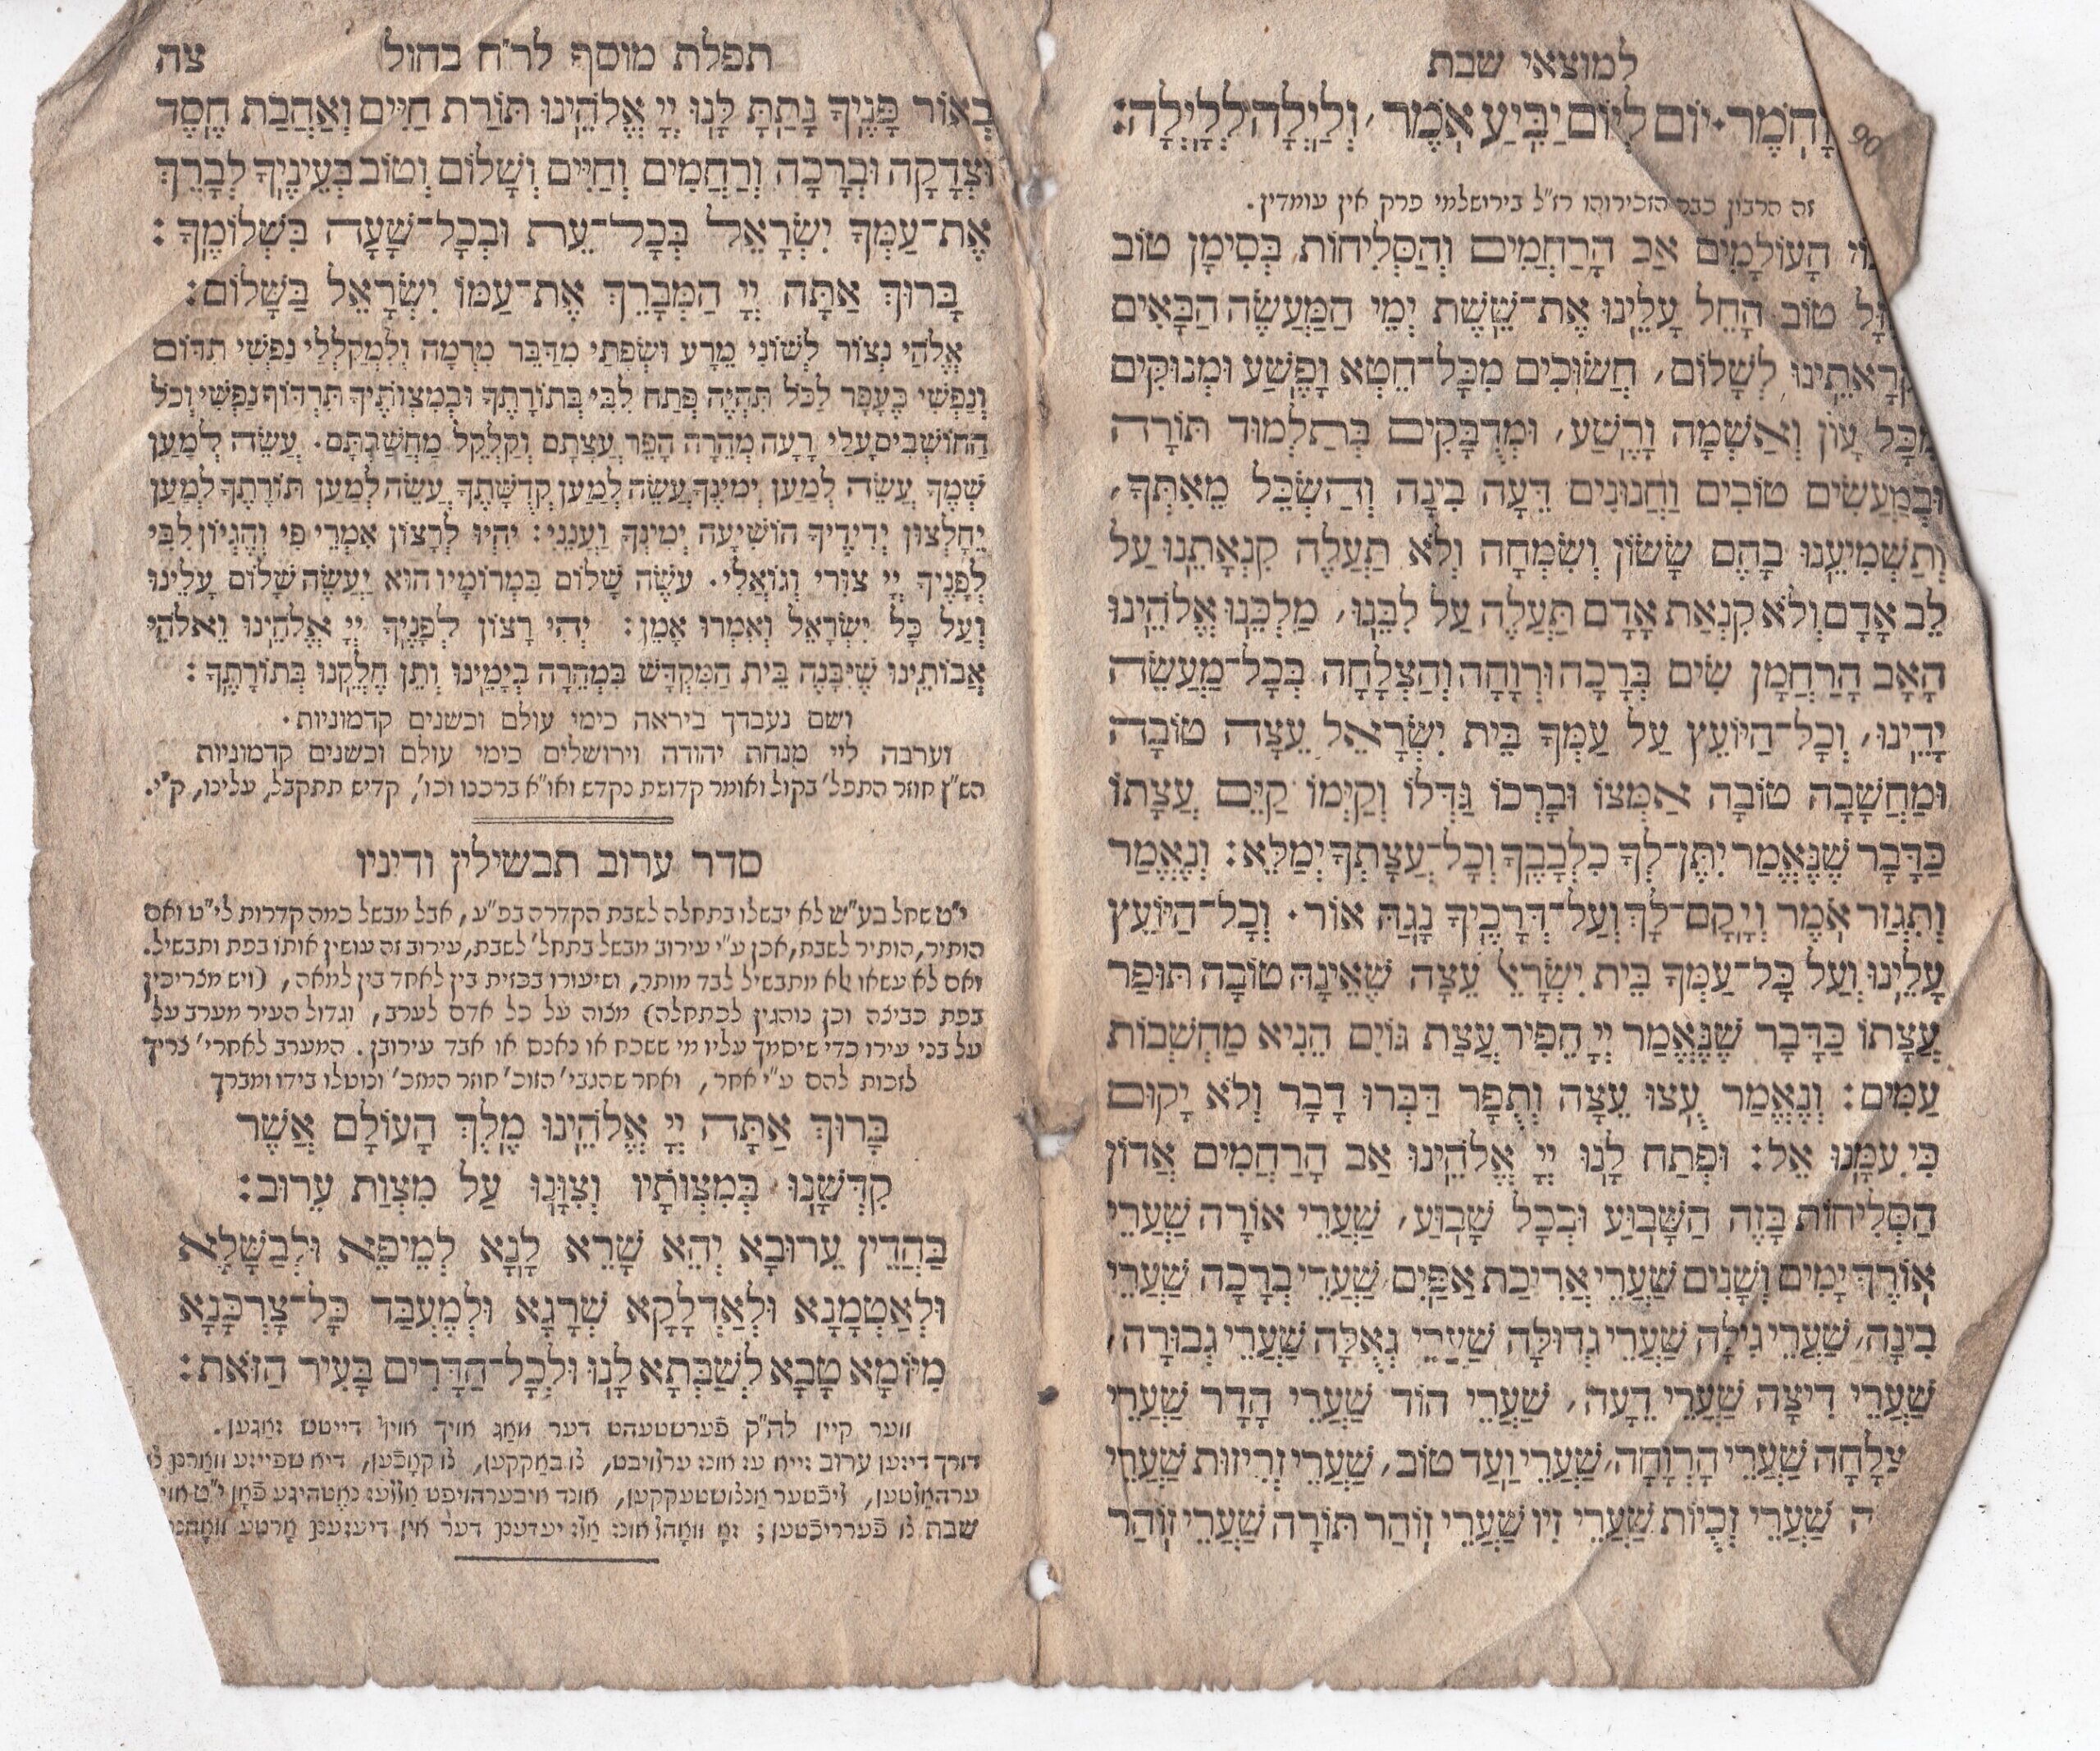 למוצאי שבת
90
וָחֹמֶר · יוֹם לְיוֹם יַבִּיעַ אֹמֶר, וְלַיְלָה לְלָיְלָה:
זה הרבון כבר הזכירוהו רז"ל בירושלמי פרק אין עומדין.
הָעוֹלָמִים אַב הָרַחֲמִים וְהַסְּלִיחוֹת בְּסִימָן טוֹב
טוֹב הָחֵל עָלֵינוּ אֶת־שֵׁשֶׁת יְמֵי הַמַּעֲשֶׂה הַבָּאִים
לְשָׁלוֹם, חֲשׂוּכִים מִכָּל־חֵטְא וָפֶשַׁע וּמְנוּקִּים
מִכָּל עָוֹן וְאַשְׁמָה וָרֶשַׁע, וּמְדֻבָּקִים בְּתַלְמוּד תּוֹרָה
וּבְמַעֲשִׂים טוֹבִים וַחֲנוּנִים דֵּעָה בִינָה וְהַשְׂכֵּל מֵאִתְּךָ,
וְתַשְׁמִיעֵנוּ בָהֶם שָׂשׂוֹן וְשִׂמְחָה וְלֹא תַעֲלֶה קִנְאָתֵנוּ עַל
לֵב אָדָם וְלֹא קִנְאַת אָדָם תַּעֲלֶה עַל לִבֵּנוּ, מַלְכֵּנוּ אֱלֹהֵינוּ
הָאָב הָרַחֲמָן שִׂים בְּרָכָה וּרְוָחָה וְהַצְלָחָה בְּכָל־מַעֲשֵׂה
יָדֵינוּ, וְכָל־הַיּוֹעֵץ עַל עַמְּךָ בֵּית יִשְׂרָאֵל עֵצָה טוֹבָה
וּמַחֲשָׁבָה טוֹבָה אַמְּצוֹ וּבָרְכוֹ גַּדְּלוֹ וְקַיְּמוֹ קַיֵּם עֲצָתוֹ
כַּדָּבָר שֶׁנֶּאֱמַר יִתֶּן־לְךָ כִלְבָבֶךָ וְכָל־עֲצָתְךָ יְמַלֵּא: וְנֶאֱמַר
וְתִגְזַר אֹמֶר וְיָקָם־לָךְ וְעַל־דְּרָכֶיךָ נָגַהּ אוֹר. וְכָל־הַיּוֹעֵץ
עָלֵינוּ וְעַל כָּל־עַמְּךָ בֵּית יִשְׂרָאֵל עֵצָה שֶׁאֵינָהּ טוֹבָה תּוּפַר
עֲצָתוֹ כַּדָּבָר שֶׁנֶּאֱמַר יְיָ הֵפִיר עֲצַת גּוֹיִם הֵנִיא מַחְשְׁבוֹת
עַמִּים: וְנֶאֱמַר עֻצוּ עֵצָה וְתֻפָר דַּבְּרוּ דָבָר וְלֹא יָקוּם
כִּי עִמָּנוּ אֵל: וּפְתַח לָנוּ יְיָ אֱלֹהֵינוּ אַב הָרַחֲמִים אֲדוֹן
הַסְּלִיחוֹת בָּזֶה הַשָּׁבוּעַ וּבְכָל שָׁבוּעַ, שַׁעֲרֵי אוֹרָה שַׁעֲרֵי
אֹורֶךְ יָמִים וְשָׁנִים שַׁעֲרֵי אֲרִיכַת אַפַּיִם, שַׁעֲרֵי בְרָכָה שַׁעֲרֵי
בִינָה, שַׁעֲרֵי גִילָה שַׁעֲרֵי גְדוּלָּה שַׁעֲרֵי גְאֻלָּה שַׁעֲרֵי גְבוּרָה,
שַׁעֲרֵי דִיצָה שַׁעֲרֵי דֵעָה, שַׁעֲרֵי הוֹד שַׁעֲרֵי הָדָר שַׁעֲרֵי
שַׁעֲרֵי הָרְוָחָה, שַׁעֲרֵי וַעַד טוֹב, שַׁעֲרֵי זְרִיזוּת שַׁעֲרֵי
שַׁעֲרֵי זְכֻיּוֹת שַׁעֲרֵי זִיו שַׁעֲרֵי זוֹהַר תּוֹרָה שַׁעֲרֵי זוֹהַר
תפלת מוסף לר"ח בחול
צה
בְאוֹר פָּנֶיךָ נָתַתָּ לָּנוּ יְיָ אֱלֹהֵינוּ תּוֹרַת חַיִּים וְאַהֲבַת חֶסֶד
וּצְדָקָה וּבְרָכָה וְרַחֲמִים וְחַיִּים וְשָׁלוֹם וְטוֹב בְּעֵינֶיךָ לְבָרֵךְ
אֶת־עַמְּךָ יִשְׂרָאֵל בְּכָל־עֵת וּבְכָל־שָׁעָה בִּשְׁלוֹמֶךָ:
בָּרוּךְ אַתָּה יְיָ הַמְּבָרֵךְ אֶת־עַמּוֹ יִשְׂרָאֵל בַּשָּׁלוֹם:
אֱלֹהַי נְצוֹר לְשׁוֹנִי מֵרָע וּשְׂפָתַי מִדַּבֵּר מִרְמָה וְלִמְקַלְלַי נַפְשִׁי תִדּוֹם
וְנַפְשִׁי כֶּעָפָר לַכֹּל תִּהְיֶה פְּתַח לִבִּי בְּתוֹרָתֶךָ וּבְמִצְוֹתֶיךָ תִּרְדּוֹף נַפְשִׁי וְכֹל
הַחוֹשְׁבִים עָלַי רָעָה מְהֵרָה הָפֵר עֲצָתָם וְקַלְקֵל מַחֲשַׁבְתָּם. עֲשֵׂה לְמַעַן
שְׁמֶךָ עֲשֵׂה לְמַעַן יְמִינֶךָ עֲשֵׂה לְמַעַן קְדֻשָּׁתֶךָ עֲשֵׂה לְמַעַן תּוֹרָתֶךָ לְמַעַן
יֵחָלְצוּן יְדִידֶיךָ הוֹשִׁיעָה יְמִינְךָ וַעֲנֵנִי: יִהְיוּ לְרָצוֹן אִמְרֵי פִי וְהֶגְיוֹן לִבִּי
לְפָנֶיךָ יְיָ צוּרִי וְגוֹאֲלִי. עֹשֶׂה שָׁלוֹם בִּמְרוֹמָיו הוּא יַעֲשֶׂה שָׁלוֹם עָלֵינוּ
וְעַל כָּל יִשְׂרָאֵל וְאִמְרוּ אָמֵן: יְהִי רָצוֹן לְפָנֶיךָ יְיָ אֱלֹהֵינוּ וֵאלֹהֵי
אֲבוֹתֵינוּ שֶׁיִּבָּנֶה בֵּית הַמִּקְדָּשׁ בִּמְהֵרָה בְיָמֵינוּ וְתֵן חֶלְקֵנוּ בְּתוֹרָתֶךָ:
ושם נעבדך ביראה כימי עולם וכשנים קדמוניות.
וערבה ליי מנחת יהודה וירושלים כימי עולם וכשנים קדמוניות
הש"ץ חוזר התפל' בקול ואומר קדושת נקדש ואו"א ברכנו וכו', קדיש תתקבל, עלינו, ק"י.
סדר ערוב תבשילין ודיניו
י"ט שחל בע"ש לא יבשלו בתחלה לשבת הקדרה בפ"ע, אבל מבשל כמה קדרות לי"ט ואם
הותיר, הותיר לשבת, אכן ע"י עירוב מבשל בתחל' לשבת, עירוב זה עושין אותו בפת ותבשיל.
ואם לא עשאו אלא מתבשיל לבד מותר, ושיעורו בכזית בין לאחד בין למאה, (ויש מצריכין
בפת כביצה וכן נוהגין לכתחלה) מצוה על כל אדם לערב, וגדול העיר מערב על
על בני עירו כדי שיסמך עליו מי ששכח או נאנס או אבד עירובו. המערב לאחרי' צריך
לזכות להם ע"י אחר, ואחר שהגבי' הזוכ' חוזר המזכ' ונוטלו בידו ומברך
בָּרוּךְ אַתָּה יְיָ אֱלֹהֵינוּ מֶלֶךְ הָעוֹלָם אֲשֶׁר
קִדְּשָׁנוּ בְּמִצְוֹתָיו וְצִוָּנוּ עַל מִצְוַת עֵרוּב:
בַּהֲדֵין עֵרוּבָא יְהֵא שָׁרֵא לָנָא לְמֵיפֵא וּלְבַשָּׁלָא
וּלְאַטְמָנָא וּלְאַדְלָקָא שְׁרָגָא וּלְמֶעְבַּד כָּל־צָרְכָּנָא
מִיּוֹמָא טָבָא לְשַׁבְּתָא לָנוּ וּלְכָל־הַדָּרִים בָּעִיר הַזֹּאת:
ווער קיין לה"ק פֿערשטעהט דער מאג אויך אויף דייטש זאגען.
דורך דיזען ערוב זייא עז אונז ערלויבט, צו באקקען, צו קאכֿען, דיא שפייזע ווארם צו
ערהאלטען, ליכֿטער אנצושטעקקען, אונד איבערהויפט אללעז נאטהיגע פֿאן י"ט אויף
שבת צו פֿערריכֿטען; זא וואהל אונז אלז יעדעם דער אין דיעזעם ארטע